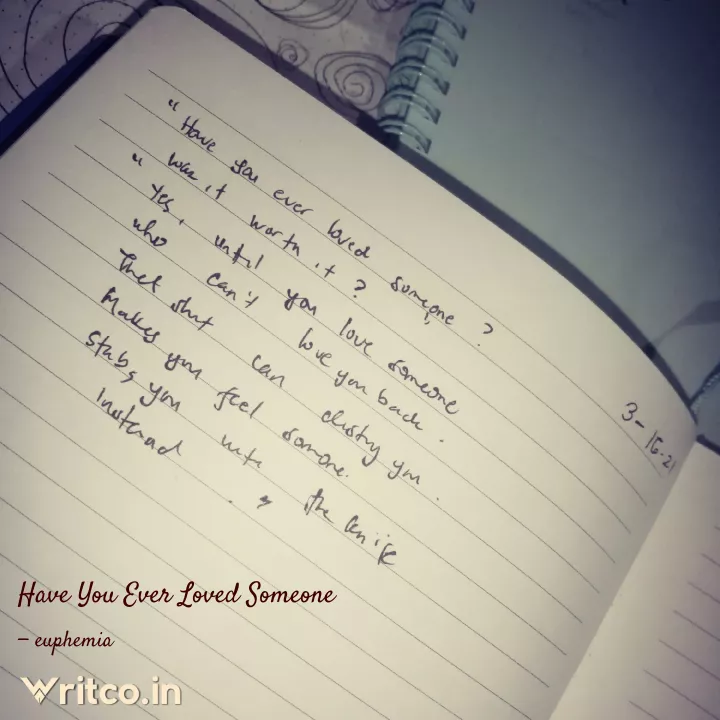 "Have you ever loved someone ?
was it worth it ?
" Yes, until you love someone
who can't love you back.
That shit can destroy you.
Makes you feel somone.
stabs you with the knife
Instead.
3-16-21
Have You Ever Loved Someone
– euphemia
Writco.in